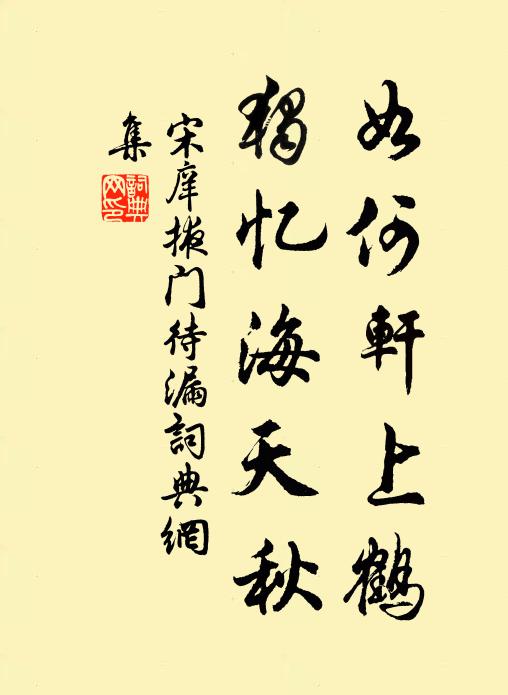 如何軒上鶴
獨忆海天秋
宋庠掖门待漏詞典網
集
詞典
网印